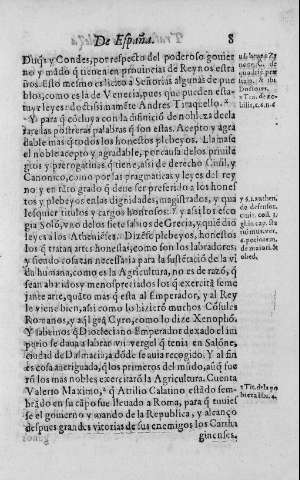 De España. 8
Duqs y Condes, por respecto del poderoso gouier
no y mãdo q̃ tienen en prouincias de Reynos estra
ños. Esto mesmo es licito a Señorias algunas de pue
blos, como es la de Venecia, pues que pueden esta-
tuyr leyes: do[ct]issimamẽte Andres Tiraquello.
Y para q̃ cõcluya con la difinició de nobleza decla
rare las postreras palabras q̃ son estas. Acepto y agra
dable mas q̃ todos los honestos plebeyos. Llama
el noble acepto y agradable, por causa de los priuile
gios y prerogatiuas q̃ tiene, assi de derecho Ciuil, y
Canonico, como por las pragmaticas y leyes del rey
no y en tãto grado q̃ deue ser preferido a los hones
tos y plebeyos en las dignidades, magistrados, y qua
lesquier titulos y cargos honrosos: y assi los esco
gia Solõ, vno delos siete sabios de Grecia, y quiẽ dio
leyes a los Athenieses. Dizese plebeyos, honestos
los q̃ tratan artes honestas, como son los labradores,
y siendo cosa tan necessaria para la sustẽtacõ de la vi
da humana, como es la Agricultura, no es de razõ, q̃
sean abatidos y menospreciados los q̃ exercitã seme
jante arte, quãto mas q̃ esta al Emperador, y al Rey
le viene bien, assi como lo hizierõ muchos Cõsules
Romanos, y aql grã Cyro, como lo dize Xenophõ.
Y sabemos q̃ Diocleciano Emperador dexado el im
perio se daua a labrar vn vergel q̃ tenia en Salõne,
ciudad de Dalmacia, a dõde se auia recogido. Y al fin
es cosa aueriguada, q̃ los primeros del mũdo, aũq̃ fue
rõ los mas nobles exercitarõ la Agricultura. Cuenta
Valerio Maximo, q̃ Attilio Calatino estãdo sem-
brãdo en su cãpo fue lleuado a Roma, para q̃ tuuie
se el gouierno y mando de la Republica, y alcanço
despues grandes vitorias de sus enemigos los Cartha
ginenses.